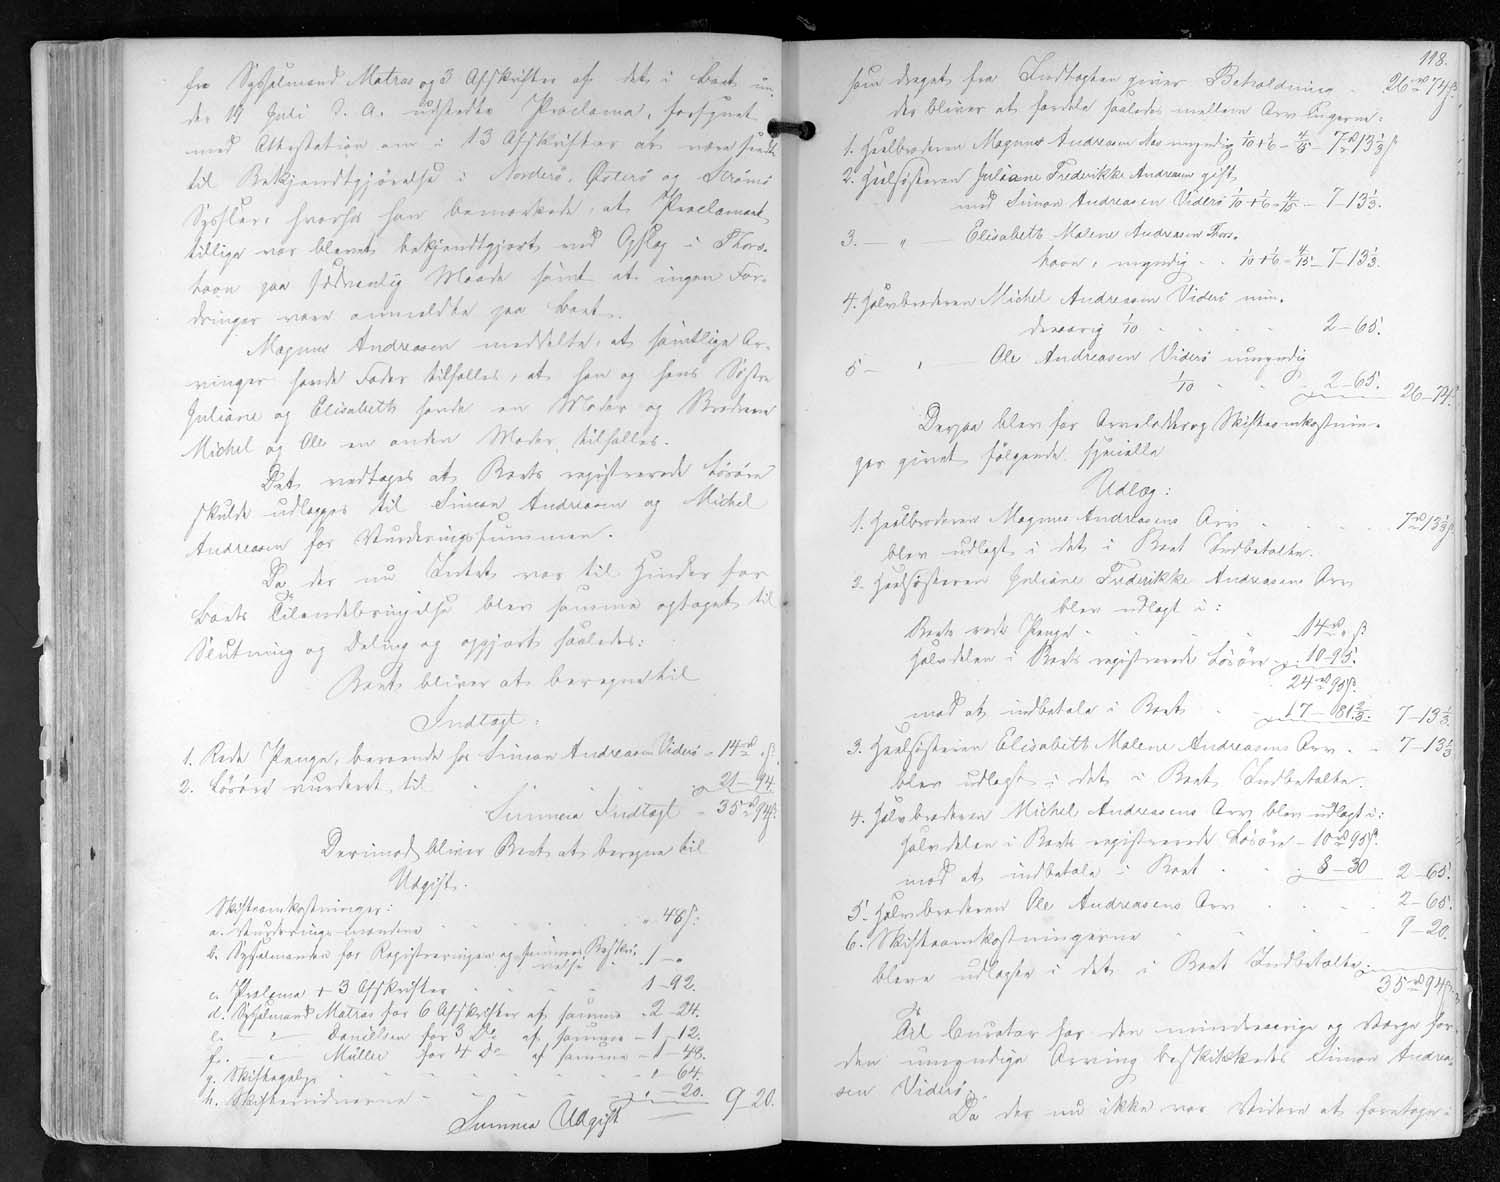 fra Sysselmand Matras og 3 Afskrifter af det i Boet un-
der 19 Juli d. A. udstedte Proclama, forsynet
med Attestation om i 13 Afskrifter at være sendt
til Bekjendtgjørelse i Norderø, Østerø og Strømø
Sysler, hvorhos han bemærkede, at Proclamaet
tillige var blevet bekjendtgjort ved Opslag i Thors-
havn paa sædvanlig Maade samt at ingen For-
dringer vare anmeldte paa Boet.
Magnus Andreasen meddelte, at samtlige Ar-
vinger havde Fader tilfælles, at han og hans Søstre
Juliane og Elisabeth havde en Moder og Brødrene
Michel og Ole en anden Moder tilfælles.
Det vedtoges at Boets registrerede Løsøre
skulde udlægges til Simon Andreasen og Michel
Andreasen for Vurderingssummen.
Da der nu Intet var til Hinder for
Boets Tilendebringelse blev samme optaget til
Slutning og Deling og opgjort saaledes:
Boet bliver at beregne til
Indtægt:
1. Rede Penge, beroende hos Simon Andreasen Viderø - 14 rd " ß.
2. Løsøre vurderet til 21 - 94.
Summa Indtægt - 35 rd 94 ß.
Derimod bliver Boet at beregne til
Udgift.
Skifteomkostninger:
a. Vurderings-mændene " 48 ß:
b. Sysselmanden for Registreringen og sammes Beskri-
velse 1 - "
c. Proclama + 3 Afskrifter 1 - 92.
d. Sysselmand Matras for 6 Afskrifter af samme - 2 - 24.
e. - " - Danielsen for 3 Do af samme - 1 - 12.
f. - " - Müller for 4 Do af samme - 1 - 48.
g. Skiftegebyr " 64.
h. Skiftevidnerne " - 20. 9 - 20.
Summa Udgift
118.
som draget fra Indtægten giver Beholdning 26 rd 74 ß.
der bliver at fordele saaledes mellem Arvingerne:
1. Heelbroderen Magnus Andreasen Næs myndig 1/10 + 1/6 = 4/15 - 7 rd 13 1/3 ß
2. Heelsøsteren Juliane Frederikke Andreasen gift
med Simon Andreasen Viderø 1/10 + 1/6 = 4/15 - 7 - 13 1/3.
3. - " - Elisabeth Malene Andreasen Thors-
havn, umyndig 1/10 + 1/6 = 4/15 - 7 - 13 1/3.
4. Halvbroderen Michel Andreasen Viderø min-
dreaarig 1/10 2 - 65.
5 - " - Ole Andreasen Viderø umyndig
1/10 2 - 65. 26 - 74.
Derpaa blev for Arvelodder og Skifteomkostnin-
ger givet følgende specielle
Udlæg:
1. Heelbroderen Magnus Andreasens Arv 7 rd 13 1/3 ß.
blev udlagt i det i Boet Indbetalte.
2. Heelsøsteren Juliane Frederikke Andreasens Arv
blev udlagt i:
Boets rede Penge 14 rd " ß
Halvdelen i Boets registrerede Løsøre 10 - 95.
24 rd 95 ß.
mod at indbetale i Boet 17 - 81 2/3. 7 - 13 1/3
3. Heelsøsteren Elisabeth Malene Andreasens Arv 7 - 13 1/3
blev udlagt i det i Boet Indbetalte.
4. Halvbroderen Michel Andreasens Arv blev udlagt i:
Halvdelen i Boets registrerede Løsøre - 10 rd 95 ß.
mod at indbetale i Boet 8 - 30 2 - 65.
5. Halvbroderen Ole Andreasens Arv 2 - 65.
6. Skifteomkostningerne 9 - 20.
bleve udlagte i det i Boet Indbetalte.
35 rd 94 ß.
Til Curator for den mindreaarige og Værge for
den umyndige Arving beskikkedes Simon Andrea-
sen Viderø.
Da der nu ikke var Videre at foretage i